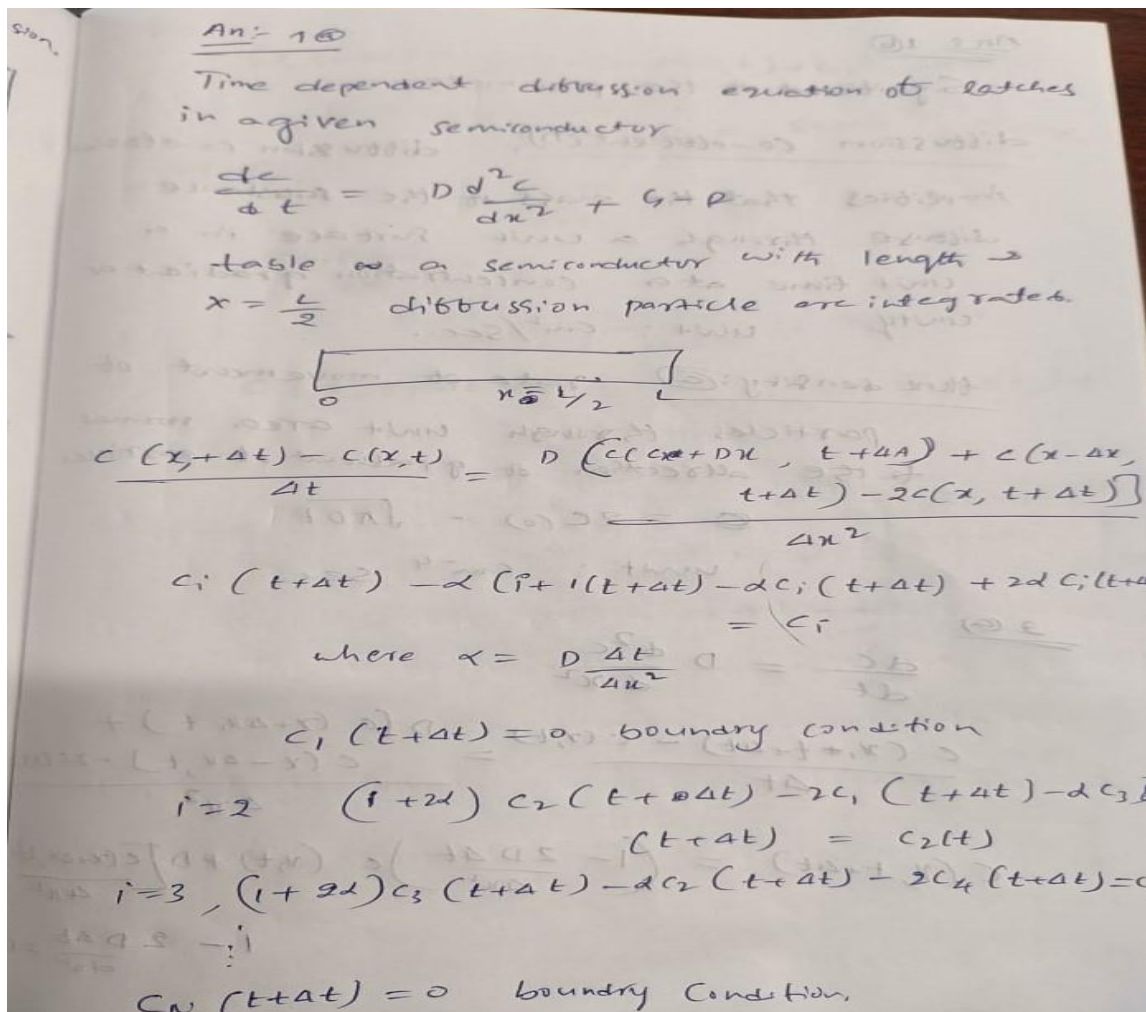 ssion.
An:- 1 ⓐ
Time dependent dibbussion equation ob latches
in a given semiconductor
dc/dt = D d²c/dx² + G + R
table a semiconductor with length →
x = L/2 dibbussion particle are integrated.
0 x = L/2 L
C (x, + Δt) - C(x,t) / Δt = D [C(x + Dx, t + ΔA) + C(x-Δx,
t+Δt) - 2C(x, t+Δt)] / Δx²
Ci (t+Δt) - α (i+1(t+Δt) - αCi (t+Δt) + 2α Ci(t+Δ
= Ci
where α = D Δt/Δx²
C1 (t+Δt) = 0 boundry condition
i=2 (1+2α) C2 (t+Δt) - 2C1 (t+Δt) - αC3
(t+Δt) = C2(t)
i=3, (1+2α)C3 (t+Δt) - αC2 (t+Δt) - 2C4 (t+Δt) = C
CN (t+Δt) = 0 boundry Condition.